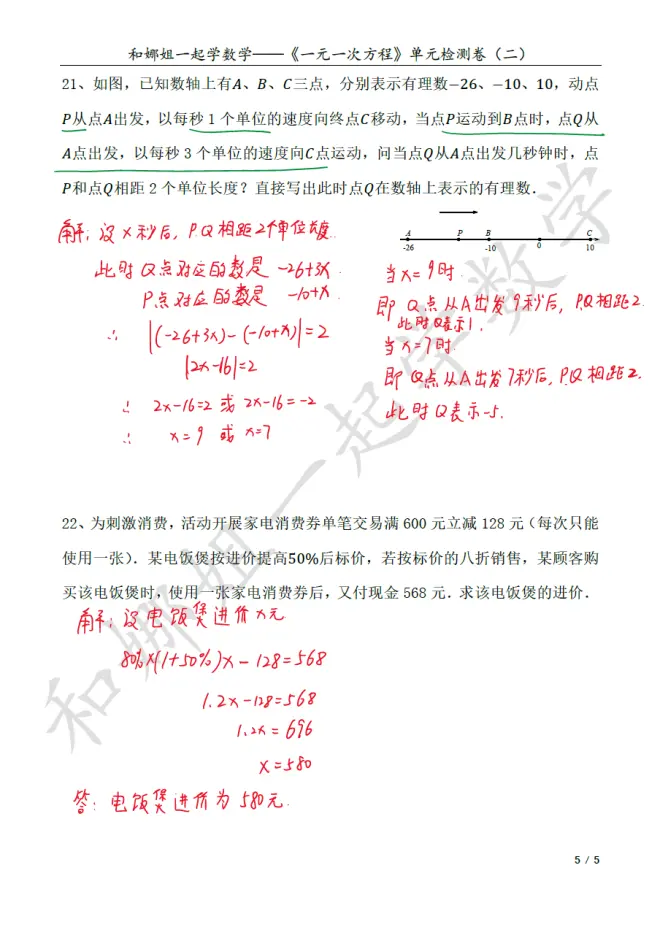 和娜姐一起学数学——《一元一次方程》单元检测卷（二）
21、如图，已知数轴上有A、B、C三点，分别表示有理数−26、−10、10，动点
P从点A出发，以每秒1个单位的速度向终点C移动，当点P运动到B点时，点Q从
A点出发，以每秒3个单位的速度向C点运动，问当点Q从A点出发几秒钟时，点
P和点Q相距2个单位长度？直接写出此时点Q在数轴上表示的有理数．
解：设x秒后，P.Q相距2个单位长度
此时Q点对应的数是 -26+3x
P点对应的数是 -10+x
∴ |(-26+3x)-(-10+x)|=2
|2x-16|=2
∴ 2x-16=2 或 2x-16=-2
∴ x=9 或 x=7
A P B C
-26 -10 0 10
当x=9时
即Q点从A出发9秒后，P.Q相距2.
此时Q表示1.
当x=7时
即Q点从A出发7秒后，P.Q相距2.
此时Q表示-5.
22、为刺激消费，活动开展家电消费券单笔交易满600元立减128元（每次只能
使用一张）．某电饭煲按进价提高50%后标价，若按标价的八折销售，某顾客购
买该电饭煲时，使用一张家电消费券后，又付现金568元．求该电饭煲的进价．
解：设电饭煲进价x元
80%×(1+50%)x-128=568
1.2x-128=568
1.2x=696
x=580
答：电饭煲进价为580元.
和娜姐一起学数学
5 / 5